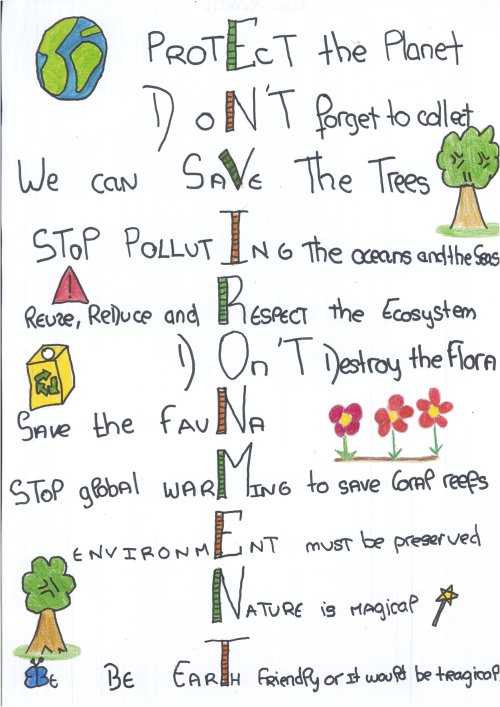 PROTECT the Planet
DON'T forget to collect
We can SAVE The Trees
STOP POLLUTING The oceans and the Seas
Reuse, Reduce and RESPECT the Ecosystem
DOn'T Destroy the Flora
SAVE the FAUNA
STOP global WARMING to SAVE Coral reefs
ENVIRONMENT must be preserved
NATURE is MAgical
BE BE EARTH Friendly or It would be tragical